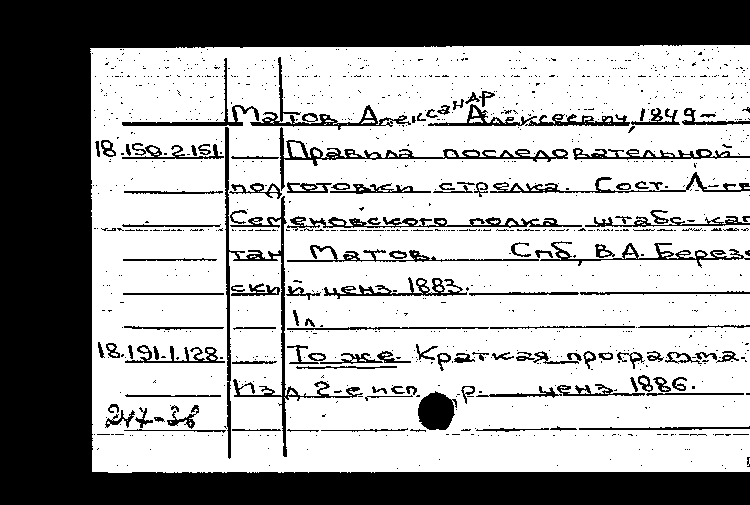 Матов, Александр Алексеевич, 1849-
18.150.2.151. Правила последовательной
подготовки стрелка. Сост. Л-гв
Семеновского полка штабс-кап
тан Матов. Спб, В.А. Березо
ский, ценз. 1883.
1л.
18.191.1.128. То же. Краткая программа.
Изд. 2-е, исп р. ценз 1886.
247-38